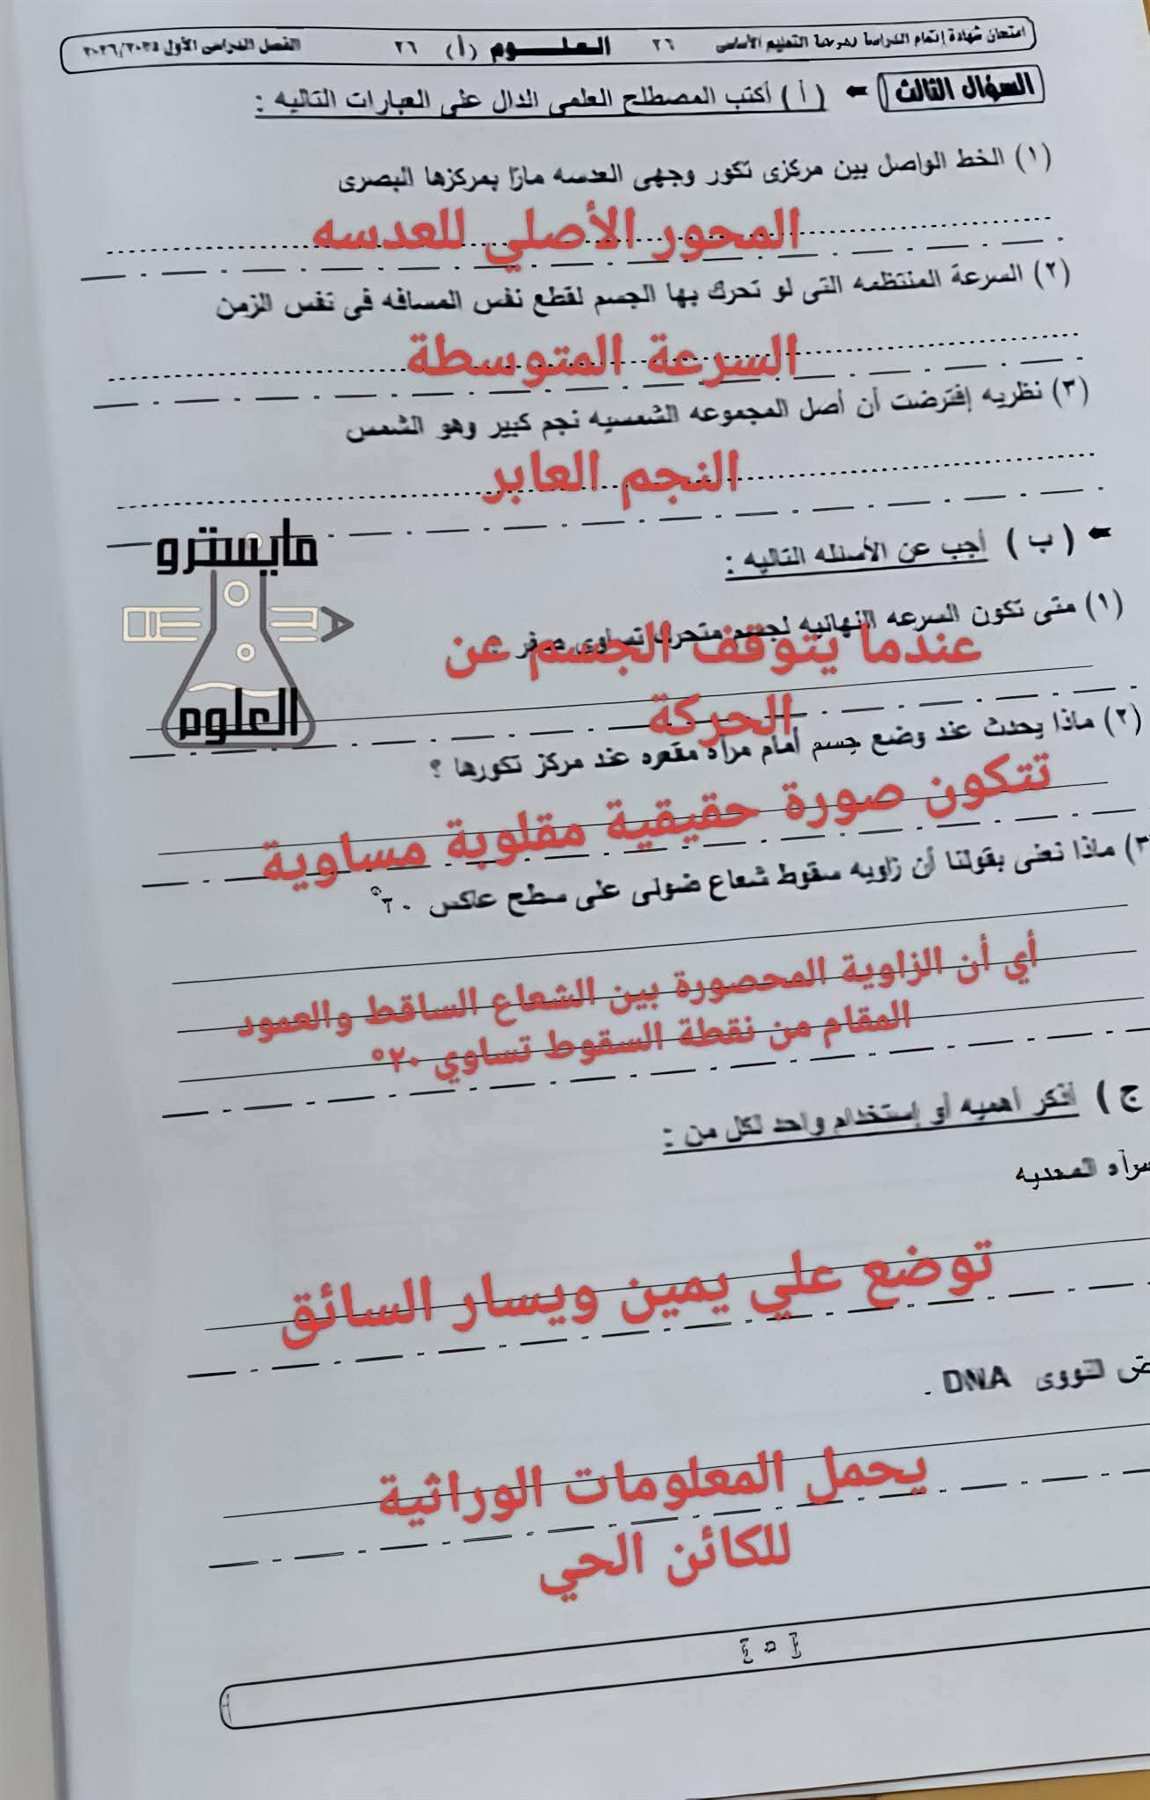 امتحان شهادة إتمام الدراسة لمرحلة التعليم الأساسى ٢٦ العلـــوم (أ) ٢٦ الفصل الدراسى الأول ٢٠٢٦/٢٠٢٥
السؤال الثالث (أ) أكتب المصطلح العلمى الدال على العبارات التاليه :
(١) الخط الواصل بين مركزى تكور وجهى العدسه مارًا بمركزها البصرى
المحور الأصلي للعدسه
(٢) السرعة المنتظمه التى لو تحرك بها الجسم لقطع نفس المسافه فى نفس الزمن
السرعة المتوسطة
(٣) نظريه إفترضت أن أصل المجموعه الشمسيه نجم كبير وهو الشمس
النجم العابر
(ب) أجب عن الأسئله التاليه :
مايسترو
العلوم
(١) متى تكون السرعه النهائيه لجسم متحرك تساوى صفر ؟
عندما يتوقف الجسم عن
الحركة
(٢) ماذا يحدث عند وضع جسم أمام مرآه مقعره عند مركز تكورها ؟
تتكون صورة حقيقية مقلوبة مساوية
٣) ماذا نعنى بقولنا أن زاويه سقوط شعاع ضوئى على سطح عاكس
أي أن الزاوية المحصورة بين الشعاع الساقط والعمود
المقام من نقطة السقوط تساوي ٢٠°
ج) أذكر أهميه أو إستخدام واحد لكل من :
المحدبه
توضع علي يمين ويسار السائق
النووى DNA .
يحمل المعلومات الوراثية
للكائن الحي
[ ٥ ]